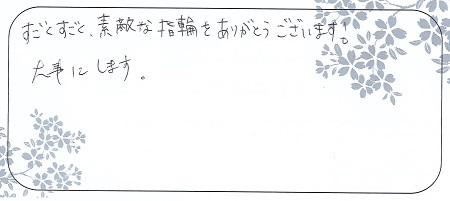 すごとすごと、素敵な指輪をありがとうございます!
大事にします。